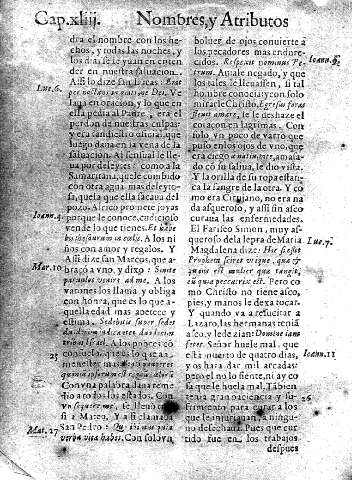 Cap.xliij. Nombres, y Atributos
dra el nombre con los he-
chos, y todas las noches, y
los dias se le yuan en enten-
der en nuestra saluacion.
Assi lo dize san Lucas: Erat
per noctans in oratione Dei. Ve
laua en oracion, y lo que en
ella pedia al Padre, era el
perdon de nuestras culpas:
y era tan diestro oficial, que
luego daua en la vena de la
saluacion. Al sensual le lle-
ua por deleytes: como a la
Samaritana, que le combide
con otra agua mas deleyto-
sa, que la que ella sacaua del
pozo. Al rico promete joyas
porque le conoce, cudicioso
vende lo que tienes. Et habe
bis thesaurum in coelo. A los ni
ños con amor y regalos. Y
Assi dize san Marcos, que a-
braço a vno, y dixo: Sinite
paruulos venire ad me. A los
varones los llama, y obliga
con honra, que es lo que a-
quella edad mas apetece y
estima.
A los pobres có
Con vna palabra daua reme
dio a todos los estados. Con
vn sequere me, se lleuo
si a Mateo. Y a si llamaua
san Pedro:
verba vitæ habes. Con solo vn
Luc.6.
Ioann.4
Mar.10
25
Mat.27
boluer de ojos conuierte à
los pecadores mas endure-
cidos. Respexit Dominus Pe-
trum. Auiale negado, y que
los tales se lleuassen, si tal
hombre conocia; y con solo
mirarle Christo, Egressus foras
fleuit amarè, le le deshaze el
coraçon en lagrimas. Con
solo vn poco de varro que
puso en los ojos de vno, que
era ciego à natiuitate, amassa-
do cō su saliua, le dio vista.
Y la orilla de su ropa estan-
ca la sangre de la otra. Y co
mo era Cirujano, no era na
da asqueroso, y assi sin asco
curaua las enfermedades.
El Fariseo Simon, muy as
queroso de la lepra de Maria
Magdalena dize: Hic si esset
Propheta sciret vtique, quæ &
qualis est mulier quæ tangit
eū, quia peccatrix est. Pero co
mo Christo no tiene asco,
pies, y manos le dexa tocar.
Y quando va a resucitar a
Lazaro, las hermanas teniā
asco, y le deziā: Domine iam
foetet. Señor huele mal, que
està muerto de quatro dias,
y os harà dar mil arcadas:
pero el no lo siente, ni ay co
sa que le huela mal. Tābien
tenia gran paciencia y su-
frimiento para curar a los
que le injuriauan, a ningu-
no desechaua. Pues que en-
tido fue en los trabajos
despues
Ioann.9.
Luc.7.
Ioann.11
26